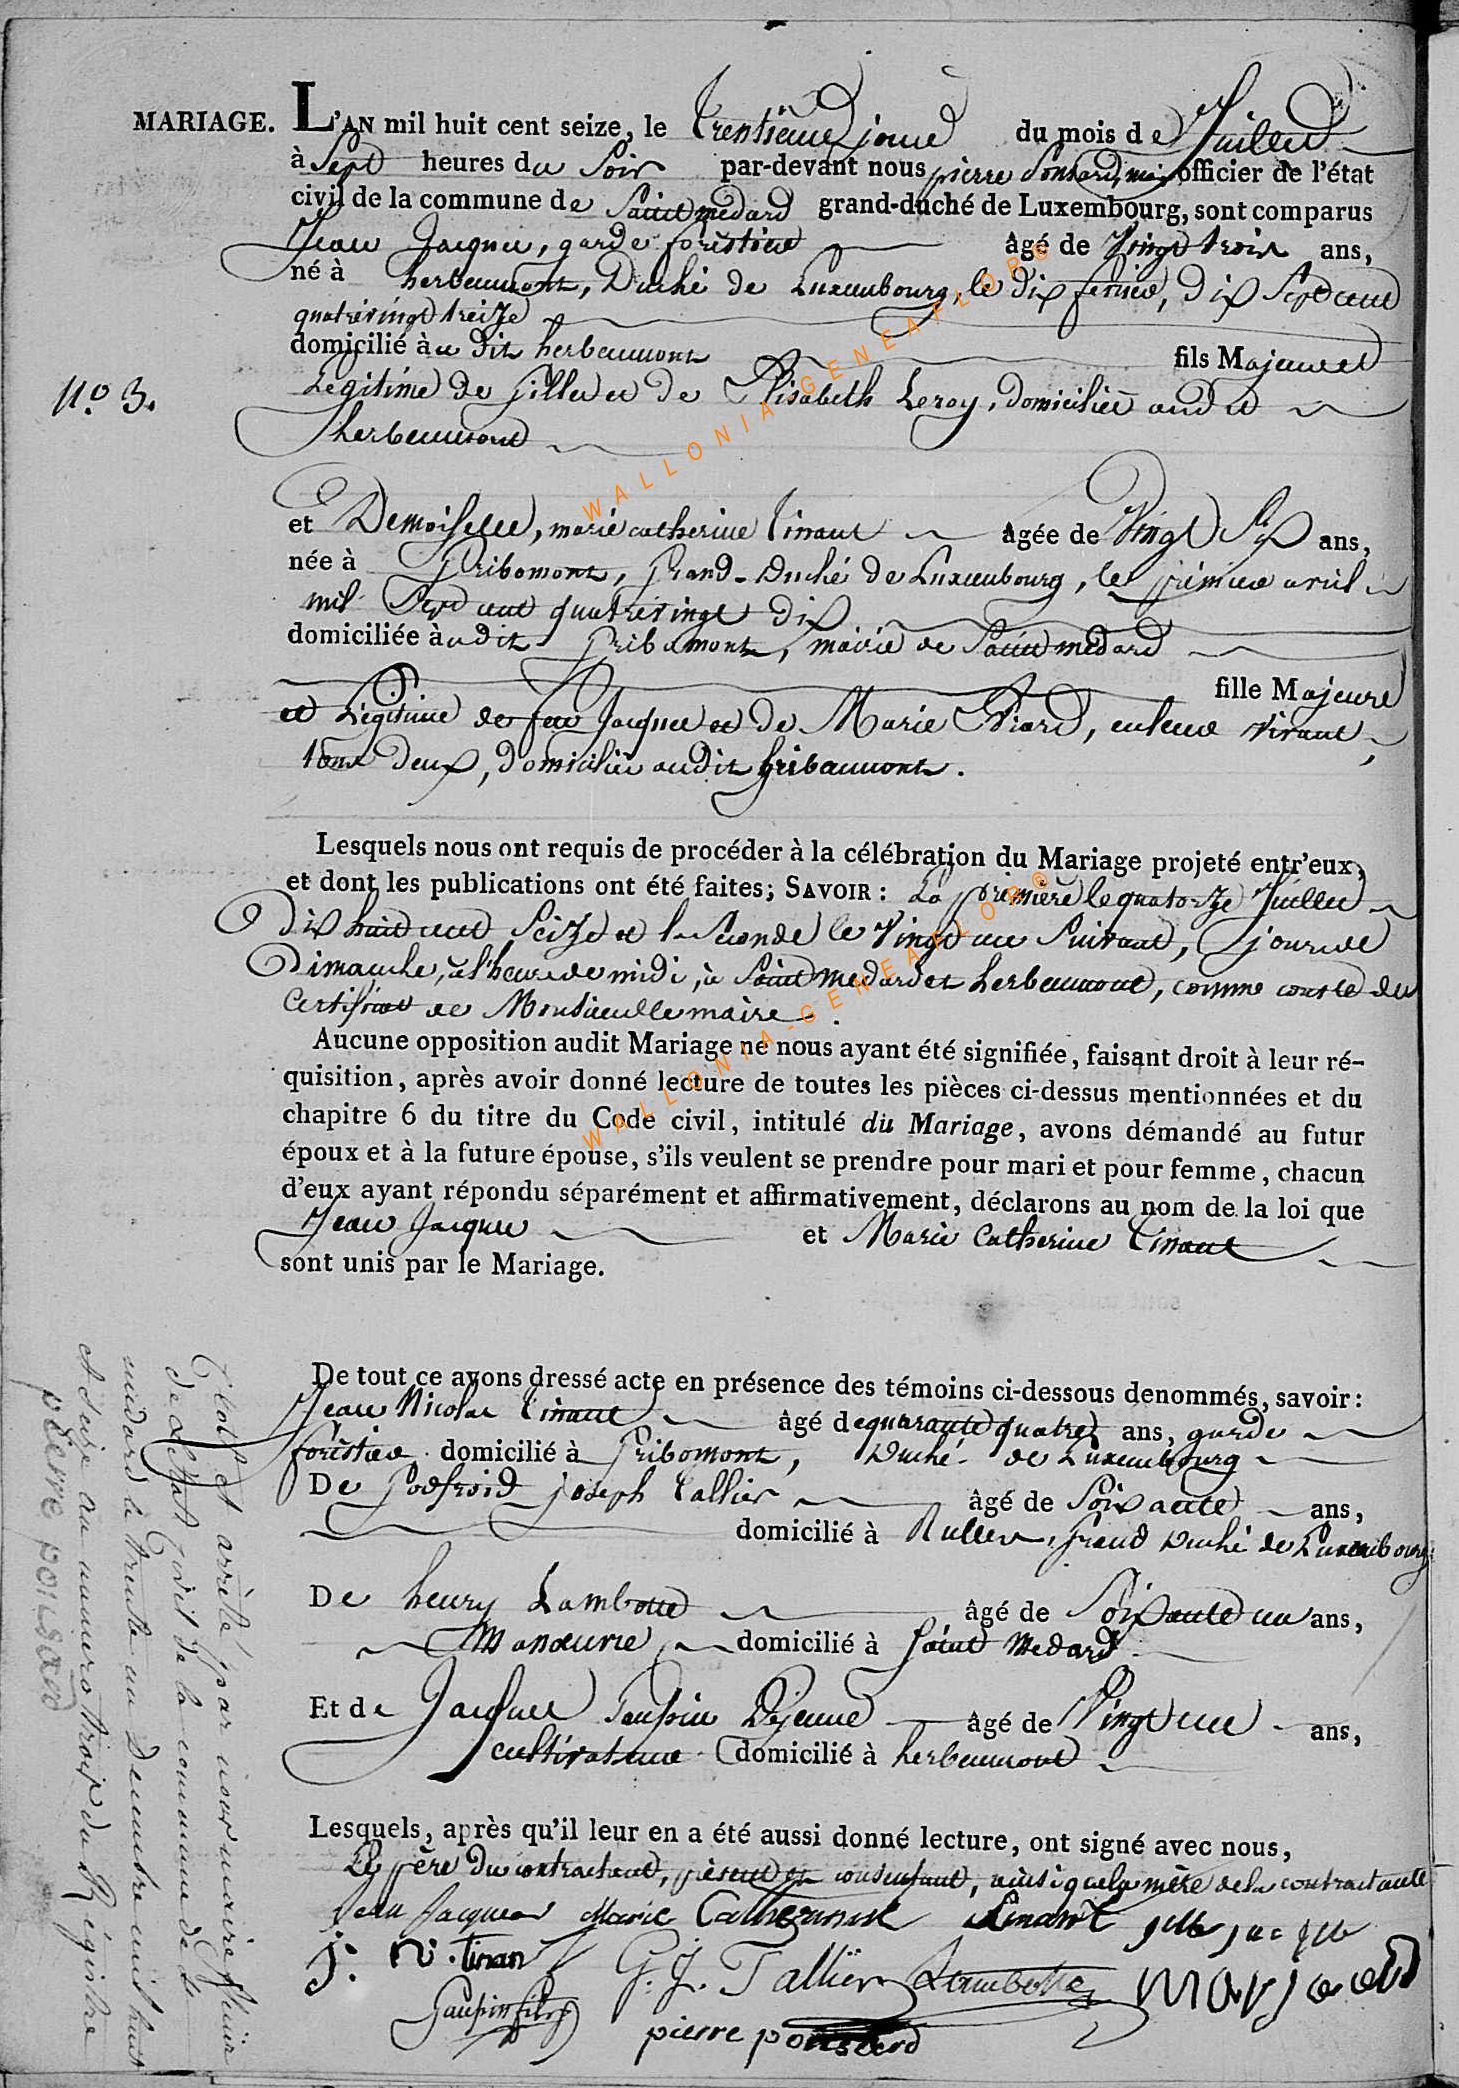 MARIAGE. L'AN mil huit cent seize, le trentieme jour du mois de Juillet
à Sept heures du Soir par-devant nous pierre Ponsard, maire officier de l'état
civil de la commune de Saint medard grand-duché de Luxembourg, sont comparus
Jean Jacques, garde forêstier âgé de Vingt trois ans,
né à herbeumont, Duché de Luxembourg, le dix fevrier, dix Sept cent
quatrevingt treize
domicilié au dit herbeumont fils Majeur et
N.o 3.
Legitime de Gilles et de Elisabeth Leroy, domiciliés audit
herbeumont
et Demoiselle, marie catherine Tinant âgée de Vingt Six ans,
née à Gribomont, Grand-Duché de Luxembourg, le premier avril
mil Sept cent quatrevingt dix
domiciliée audit Gribomont, mairie de Saint medard
fille Majeure
et Légitime de feu Jacques et de Marie Piard, en leur vivant
tous deux, domiciliés audit Gribaumont.
Lesquels nous ont requis de procéder à la célébration du Mariage projeté entr'eux,
et dont les publications ont été faites; SAVOIR : La première le quatorze Juillet
Dix huit cent Seize et la Seconde le Vingt un Suivant, jour de
Dimanche, à l'heure de midi, à Saint medard et herbeumont, comme conste du
Certificat de Monsieur le maire.
Aucune opposition audit Mariage ne nous ayant été signifiée, faisant droit à leur ré-
quisition, après avoir donné lecture de toutes les pièces ci-dessus mentionnées et du
chapitre 6 du titre du Code civil, intitulé du Mariage, avons démandé au futur
époux et à la future épouse, s'ils veulent se prendre pour mari et pour femme, chacun
d'eux ayant répondu séparément et affirmativement, déclarons au nom de la loi que
Jean Jacques et Marie Catherine Tinant
sont unis par le Mariage.
De tout ce avons dressé acte en présence des témoins ci-dessous denommés, savoir :
Jean Nicolas Tinant âgé de quarante quatre ans, garde
forêstier domicilié à Gribomont, Duché de Luxembourg
De Godfroid Joseph Tallier âgé de Soixante ans,
domicilié à Rulles, Grand Duché de Luxembourg
De henry Lambotte âgé de Soixante un ans,
Manœuvre domicilié à Saint Medard
Et de Jacques Gaupin Dejeune âgé de Vingt un ans,
cultivateur domicilié à herbeumont
Lesquels, après qu'il leur en a été aussi donné lecture, ont signé avec nous,
Le père du contractant, présent et consentant, ainsi que la mère de la contractante
Jean Jacques Marie Catherine Tinant gille jacque
j. n. tinant G. J. Tallier Lambotte
Gaupin fils
pierre ponsard
Clos et arrêté par nous maire officier
de l'Etat Civil de la commune de St
medard le trente un Decembre mil huit
et seize au numero trois du Régistre
pierre ponsard
WALLONIA-GENEAFLOR®
WALLONIA-GENEAFLOR®